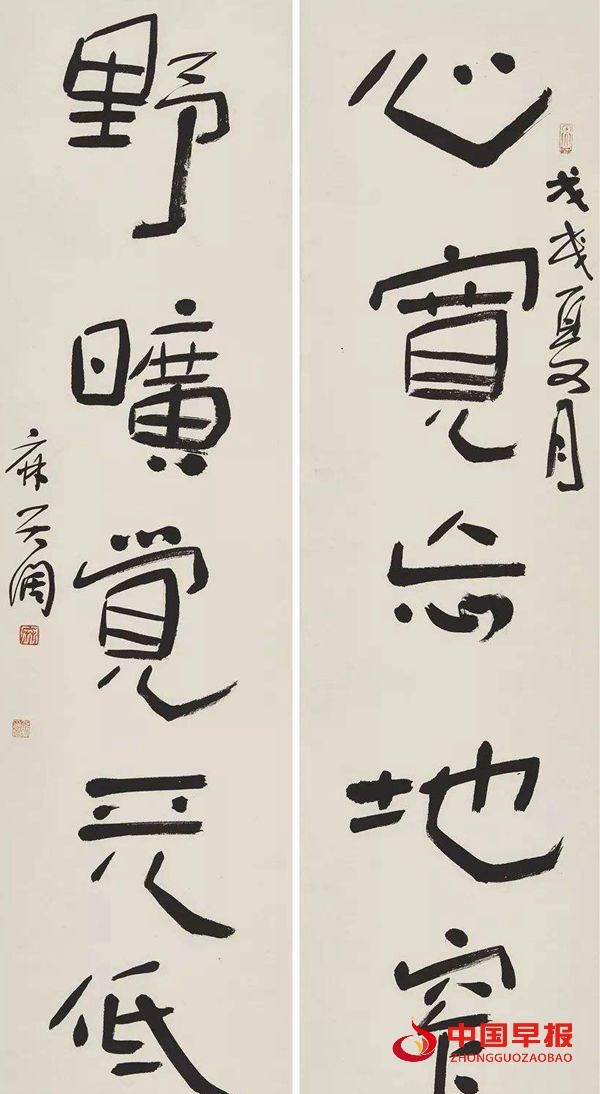 心寬忘地窄
戊戌夏五月
野曠覺天低
麻天阔
中国早报
ZHONGGUOZAOBAO